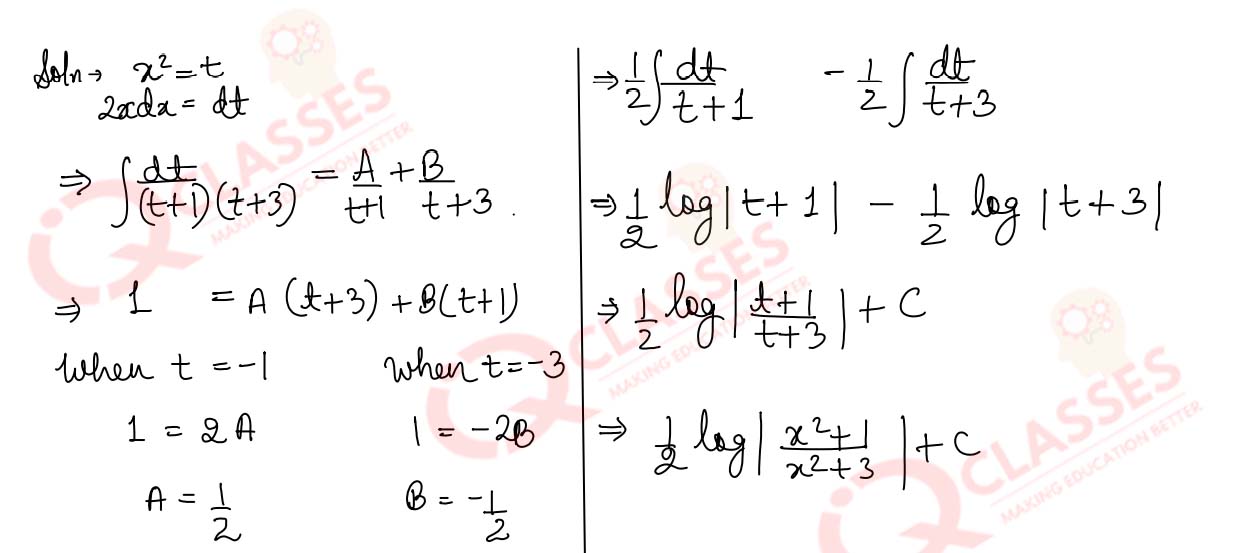 Soln → x² = t
2xdx = dt
⇒ ∫ dt/(t+1)(t+3) = A/t+1 + B/t+3 .
⇒ 1 = A (t+3) + B(t+1)
When t = -1 When t = -3
1 = 2A 1 = -2B
A = 1/2 B = -1/2
⇒ 1/2 ∫ dt/t+1 - 1/2 ∫ dt/t+3
⇒ 1/2 log|t+1| - 1/2 log |t+3|
⇒ 1/2 log| t+1/t+3 | + C
⇒ 1/2 log| x²+1/x²+3 | + C
CLASSES
MAKING EDUCATION BETTER
CLASSES
MAKING EDUCATION BETTER
CLASSES
MAKING EDUCATION BETTER